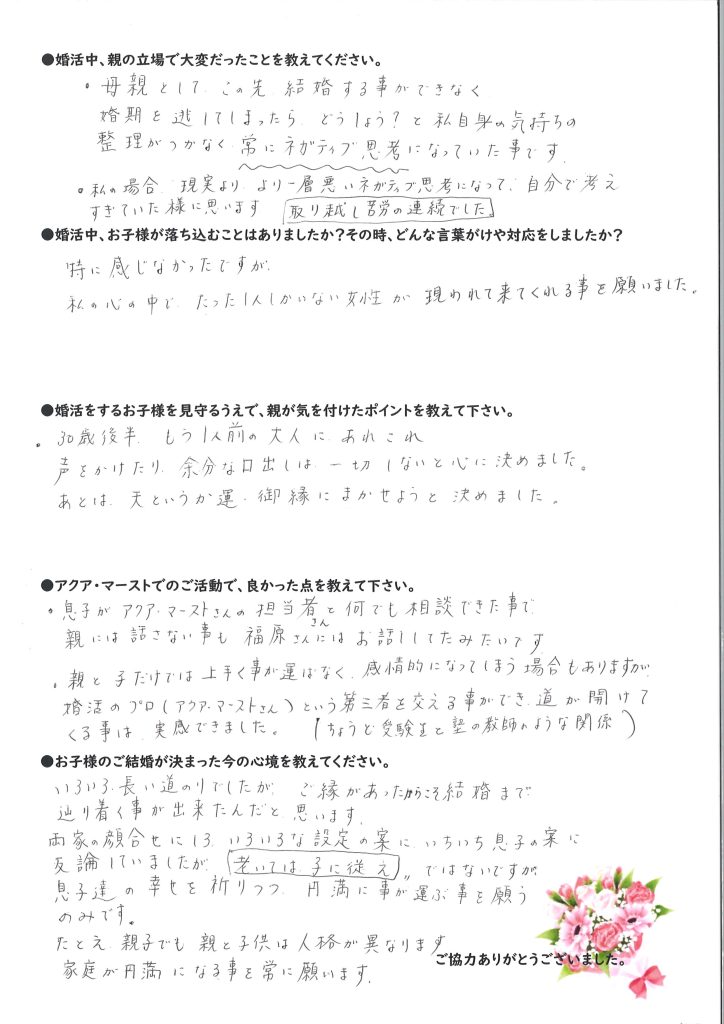 ●婚活中、親の立場で大変だったことを教えてください。
・母親として、この先、結婚する事ができなく
婚期を逃してしまったら、どうしよう?と私自身の気持ちの
整理がつかなく、常にネガティブ思考になっていた事です。
・私の場合、現実より、より一層悪いネガティブ思考になって、自分で考え
すぎていた様に思います 取り越し苦労の連続でした
●婚活中、お子様が落ち込むことはありましたか?その時、どんな言葉がけや対応をしましたか?
特に感じなかったですが、
私の心の中で、たった1人しかいない女性が現われて来てくれる事を願いました。
●婚活をするお子様を見守るうえで、親が気を付けたポイントを教えて下さい。
・30歳後半、もう1人前の大人に、あれこれ
声をかけたり、余分な口出しは、一切しないと心に決めました。
あとは、天というか運・御縁にまかせようと決めました。
●アクア・マーストでのご活動で、良かった点を教えて下さい。
・息子がアクア・マーストさんの担当者さんと何でも相談できた事で、
親には話さない事も福原さんにはお話ししてたみたいです
・親と子だけでは上手く事が運ばなく、感情的になってしまう場合もありますが、
婚活のプロ(アクア・マーストさん)という第三者を交える事ができ、道が開けて
くる事は、実感できました。(ちょうど受験生と塾の教師のような関係)
●お子様のご結婚が決まった今の心境を教えてください。
いろいろ、長い道のりでしたが、ご縁があったからこそ結婚まで
辿り着く事が出来たんだと、思います。
両家の顔合せには、いろいろな設定の案に、いちいち息子の案に
反論していましたが、老いては子に従え〃ではないですが、
息子達の幸せを祈りつつ、円満に事が運ぶ事を願う
のみです。
たとえ、親子でも親と子供は人格が異なります
家庭が円満になる事を常に願います。
ご協力ありがとうございました。